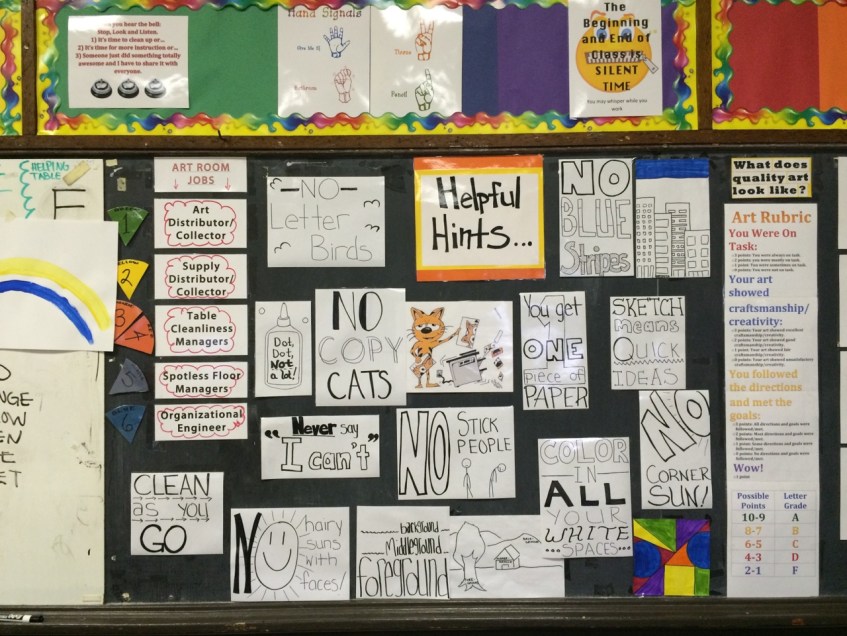 you hear the bell:
Stop, Look and Listen.
1) It's time to clean up or...
2) It's time for more instruction or...
3) Someone just did something totally
awesome and I have to share it with
everyone.
Hand Signals
Tissue
Pencil
The
Beginning
and End of
Class is
SILENT
TIME
You may whisper while you
work
HELPING
TABLE
F
NGE
LOW
ET
1
2
3
4
5
ART ROOM
JOBS
Art
Distributor/
Collector
Supply
Distributor/
Collector
Table
Cleanliness
Managers
Spotless Floor
Managers
Organizational
Engineer
-NO-
Letter
Birds
Helpful
Hints...
NO
BLUE
Stripes
Dot,
Dot,
Not
a lot!
NO
COPY
CATS
You get
ONE
piece of
PAPER
SKETCH
Means
QUICK
IDEAS
"Never say
I can't"
NO
STICK
PEOPLE
NO
CORNER
SUN!
CLEAN
as you
GO
NO
hairy
suns
with
faces!
...background...
Middleground
foreground
COLOR
IN
ALL
YOUR
WHITE
...SPACES...
What does
quality art
look like?
Art Rubric
You Were On
Task:
Your art
showed
craftsmanship/
creativity:
You followed
the directions
and met the
goals:
Wow!
Possible
Points
Letter
Grade
10-9 A
8-7 B
6-5 C
4-3 D
2-1 F